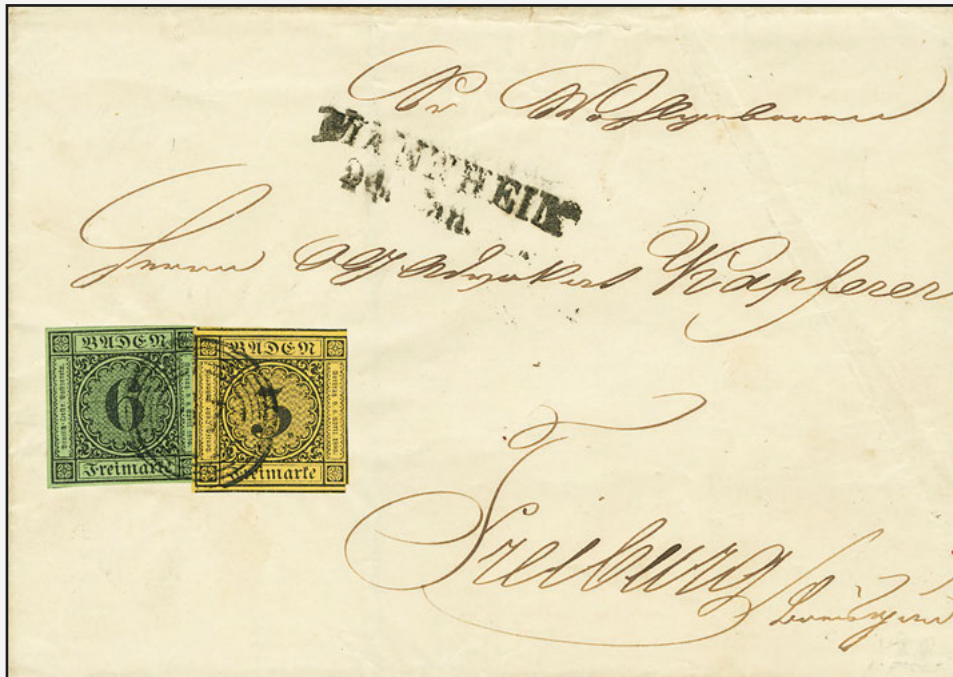 Sr Wohlgeboren
MANNHEIM
24. Jan.
Herrn OG Advokat Kapferer
BADEN
6
Freimarke
BADEN
3
Freimarke
Freiburg